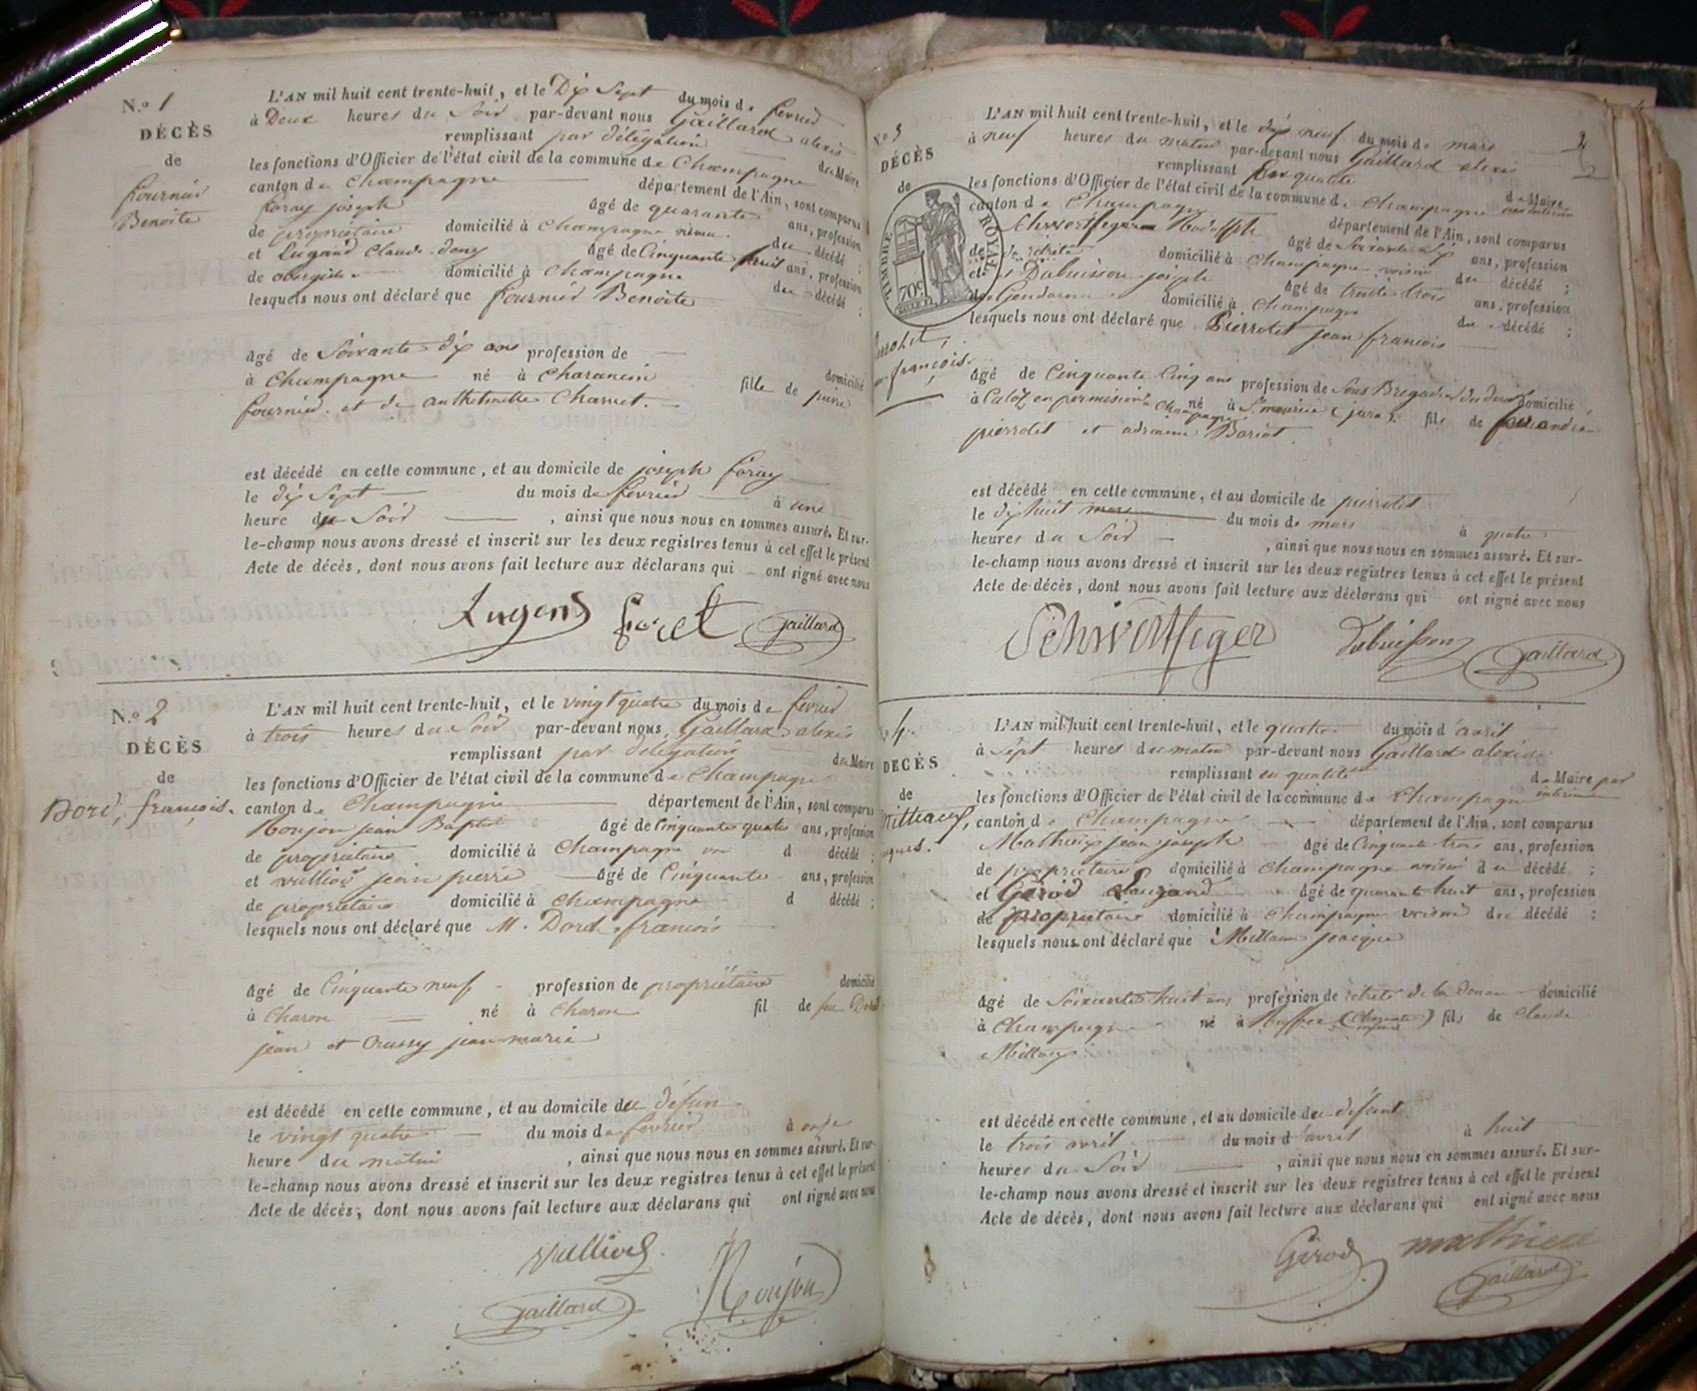 N.º 1
DÉCÈS
de
fournier
Benoite
L'AN mil huit cent trente-huit, et le Dix Sept du mois de fevrier
à Deux heures du Soir par-devant nous Gaillard alexis
remplissant par délégation du Maire
les fonctions d'Officier de l'état civil de la commune de Champagne
canton de Champagne département de l'Ain, sont comparus
foray joseph âgé de quarante ans, profession
de propriétaire domicilié à Champagne du décédé ;
et Lugand Claude âgé de Cinquante huit ans, profession
de domicilié à Champagne du décédé ;
lesquels nous ont déclaré que fournier Benoite
âgé de Soixante dix ans profession de domicilié
à Champagne né à Charancin fille de pierre
fournier et de anthelmette Charvet.
est décédé en cette commune, et au domicile de joseph foray
le dix Sept du mois de fevrier à une
heure du Soir, ainsi que nous nous en sommes assuré. Et sur-
le-champ nous avons dressé et inscrit sur les deux registres tenus à cet effet le présent
Acte de décès, dont nous avons fait lecture aux déclarans qui ont signé avec nous
Gaillard
N.º 2
DÉCÈS
de
Dord, françois.
L'AN mil huit cent trente-huit, et le vingt quatre du mois de fevrier
à trois heures du Soir par-devant nous Gaillard alexis
remplissant par délégation du Maire
les fonctions d'Officier de l'état civil de la commune de Champagne
canton de Champagne département de l'Ain, sont comparus
Monjou jean Baptiste âgé de Cinquante quatre ans, profession
de propriétaire domicilié à Champagne d décédé ;
et vulliod jean pierre âgé de Cinquante ans, profession
de propriétaire domicilié à Champagne d décédé ;
lesquels nous ont déclaré que M. Dord françois
âgé de Cinquante neuf profession de propriétaire domicilié
à Charon né à Charon fil de feu Dord
jean et Crussy jeanmarie
est décédé en cette commune, et au domicile du défun
le vingt quatre du mois de fevrier à onze
heure du matin, ainsi que nous nous en sommes assuré. Et sur-
le-champ nous avons dressé et inscrit sur les deux registres tenus à cet effet le présent
Acte de décès, dont nous avons fait lecture aux déclarans qui ont signé avec nous
vulliod
Gaillard Monjou
2
N.º 3
DÉCÈS
de
françois.
TIMBRE ROYAL
L'AN mil huit cent trente-huit, et le dix neuf du mois de mars
à neuf heures du matin par-devant nous Gaillard alexis
remplissant en qualité de Maire
les fonctions d'Officier de l'état civil de la commune de Champagne
canton de Champagne département de l'Ain, sont comparus
Schwertfeger Rodolph âgé de ans, profession
de retraité domicilié à Champagne voisin du décédé ;
et Dubuisson joseph âgé de trente trois ans, profession
de Gendarme domicilié à Champagne du décédé ;
lesquels nous ont déclaré que Pierrotet jean françois
âgé de Cinquante Cinq ans profession de Sous Brigadier des domicilié
à Culoz en permission à Champagne né à St. maurice (jura) fils de
pierrotet et Bariot.
est décédé en cette commune, et au domicile de pierrotet
le dix huit mars du mois de mars à quatre
heures du Soir, ainsi que nous nous en sommes assuré. Et sur-
le-champ nous avons dressé et inscrit sur les deux registres tenus à cet effet le présent
Acte de décès, dont nous avons fait lecture aux déclarans qui ont signé avec nous
Schwertfeger Dubuisson Gaillard
4.
DÉCÈS
de
L'AN mil huit cent trente-huit, et le quatre du mois d'avril
à Sept heures du matin par-devant nous Gaillard alexis
remplissant en qualité de Maire par interim
les fonctions d'Officier de l'état civil de la commune de Champagne
canton de Champagne département de l'Ain, sont comparus
Mathieu jean joseph âgé de Cinquante trois ans, profession
de propriétaire domicilié à Champagne voisin du décédé ;
et Gerod âgé de quarante huit ans, profession
de propriétaire domicilié à Champagne voisin du décédé ;
lesquels nous ont déclaré que
âgé de Soixante huit ans profession de retraité de la douane domicilié
à Champagne né à fils de Claude
est décédé en cette commune, et au domicile du défunt
le trois avril du mois d'avril à huit
heures du Soir, ainsi que nous nous en sommes assuré. Et sur-
le-champ nous avons dressé et inscrit sur les deux registres tenus à cet effet le présent
Acte de décès, dont nous avons fait lecture aux déclarans qui ont signé avec nous
Gerod mathieu
Gaillard